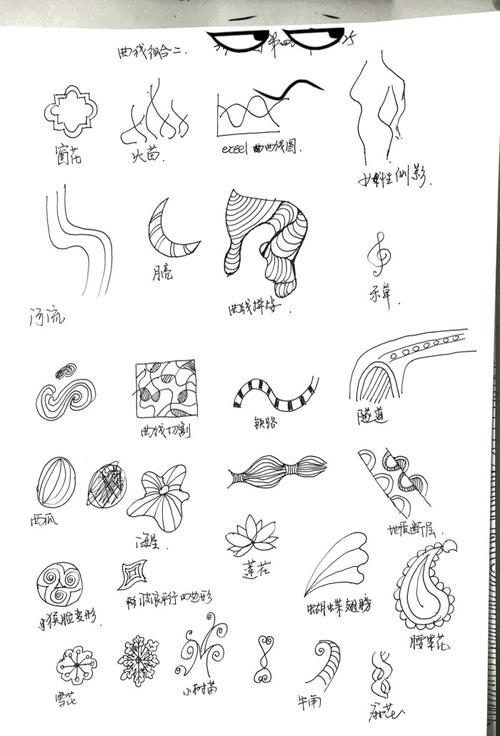 曲线组合二.
窗花
火苗
excel 曲曲线图.
女性侧影.
河流
月亮
曲线拼接.
乐章.
曲线切割
铁路
隧道
西瓜
海星.
莲花
地质断层.
猴脸变形.
平行四边形
蝴蝶翅膀
腰果花
雪花
小树苗
牛角
麻花